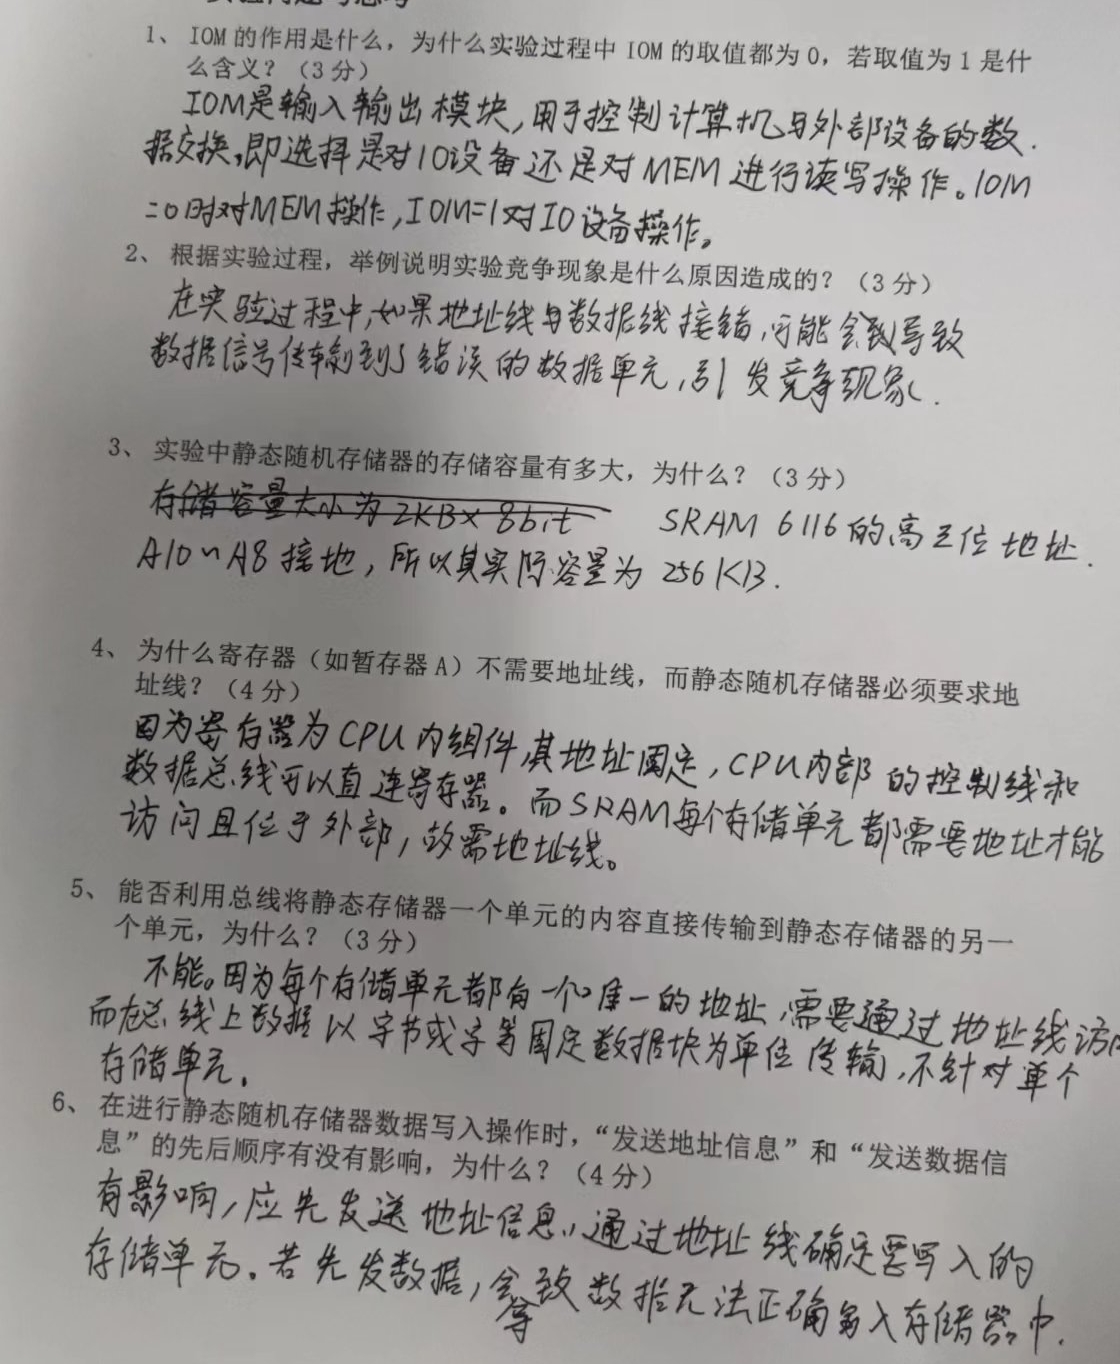 1、IOM 的作用是什么，为什么实验过程中 IOM 的取值都为 0，若取值为 1 是什
么含义？（3 分）
IOM是输入输出模块,用于控制计算机与外部设备的数.
据交换,即选择是对IO设备还是对MEM进行读写操作。IOM
=0时对MEM操作,IOM=1对IO设备操作。
2、根据实验过程，举例说明实验竞争现象是什么原因造成的？（3 分）
在实验过程中,如果地址线与数据线接错,可能会导致
数据信号传输到了错误的数据单元,引发竞争现象.
3、实验中静态随机存储器的存储容量有多大，为什么？（3 分）
存储容量大小为2KB×8bit SRAM 6116的高三位地址.
A10~A8接地,所以其实际容量为256KB.
4、为什么寄存器（如暂存器 A）不需要地址线，而静态随机存储器必须要求地
址线？（4 分）
因为寄存器为CPU内组件,其地址固定,CPU内部的控制线和
数据总线可以直连寄存器。而SRAM每个存储单元都需要地址才能
访问且位于外部,故需地址线。
5、能否利用总线将静态存储器一个单元的内容直接传输到静态存储器的另一
个单元，为什么？（3 分）
不能。因为每个存储单元都有一个唯一的地址,需要通过地址线访问
而在总线上数据以字节或字等固定数据块为单位传输,不针对单个
存储单元.
6、在进行静态随机存储器数据写入操作时，“发送地址信息”和“发送数据信
息”的先后顺序有没有影响，为什么？（4 分）
有影响,应先发送地址信息,通过地址线确定要写入的
存储单元.若先发数据,会导致数据无法正确写入存储器中.